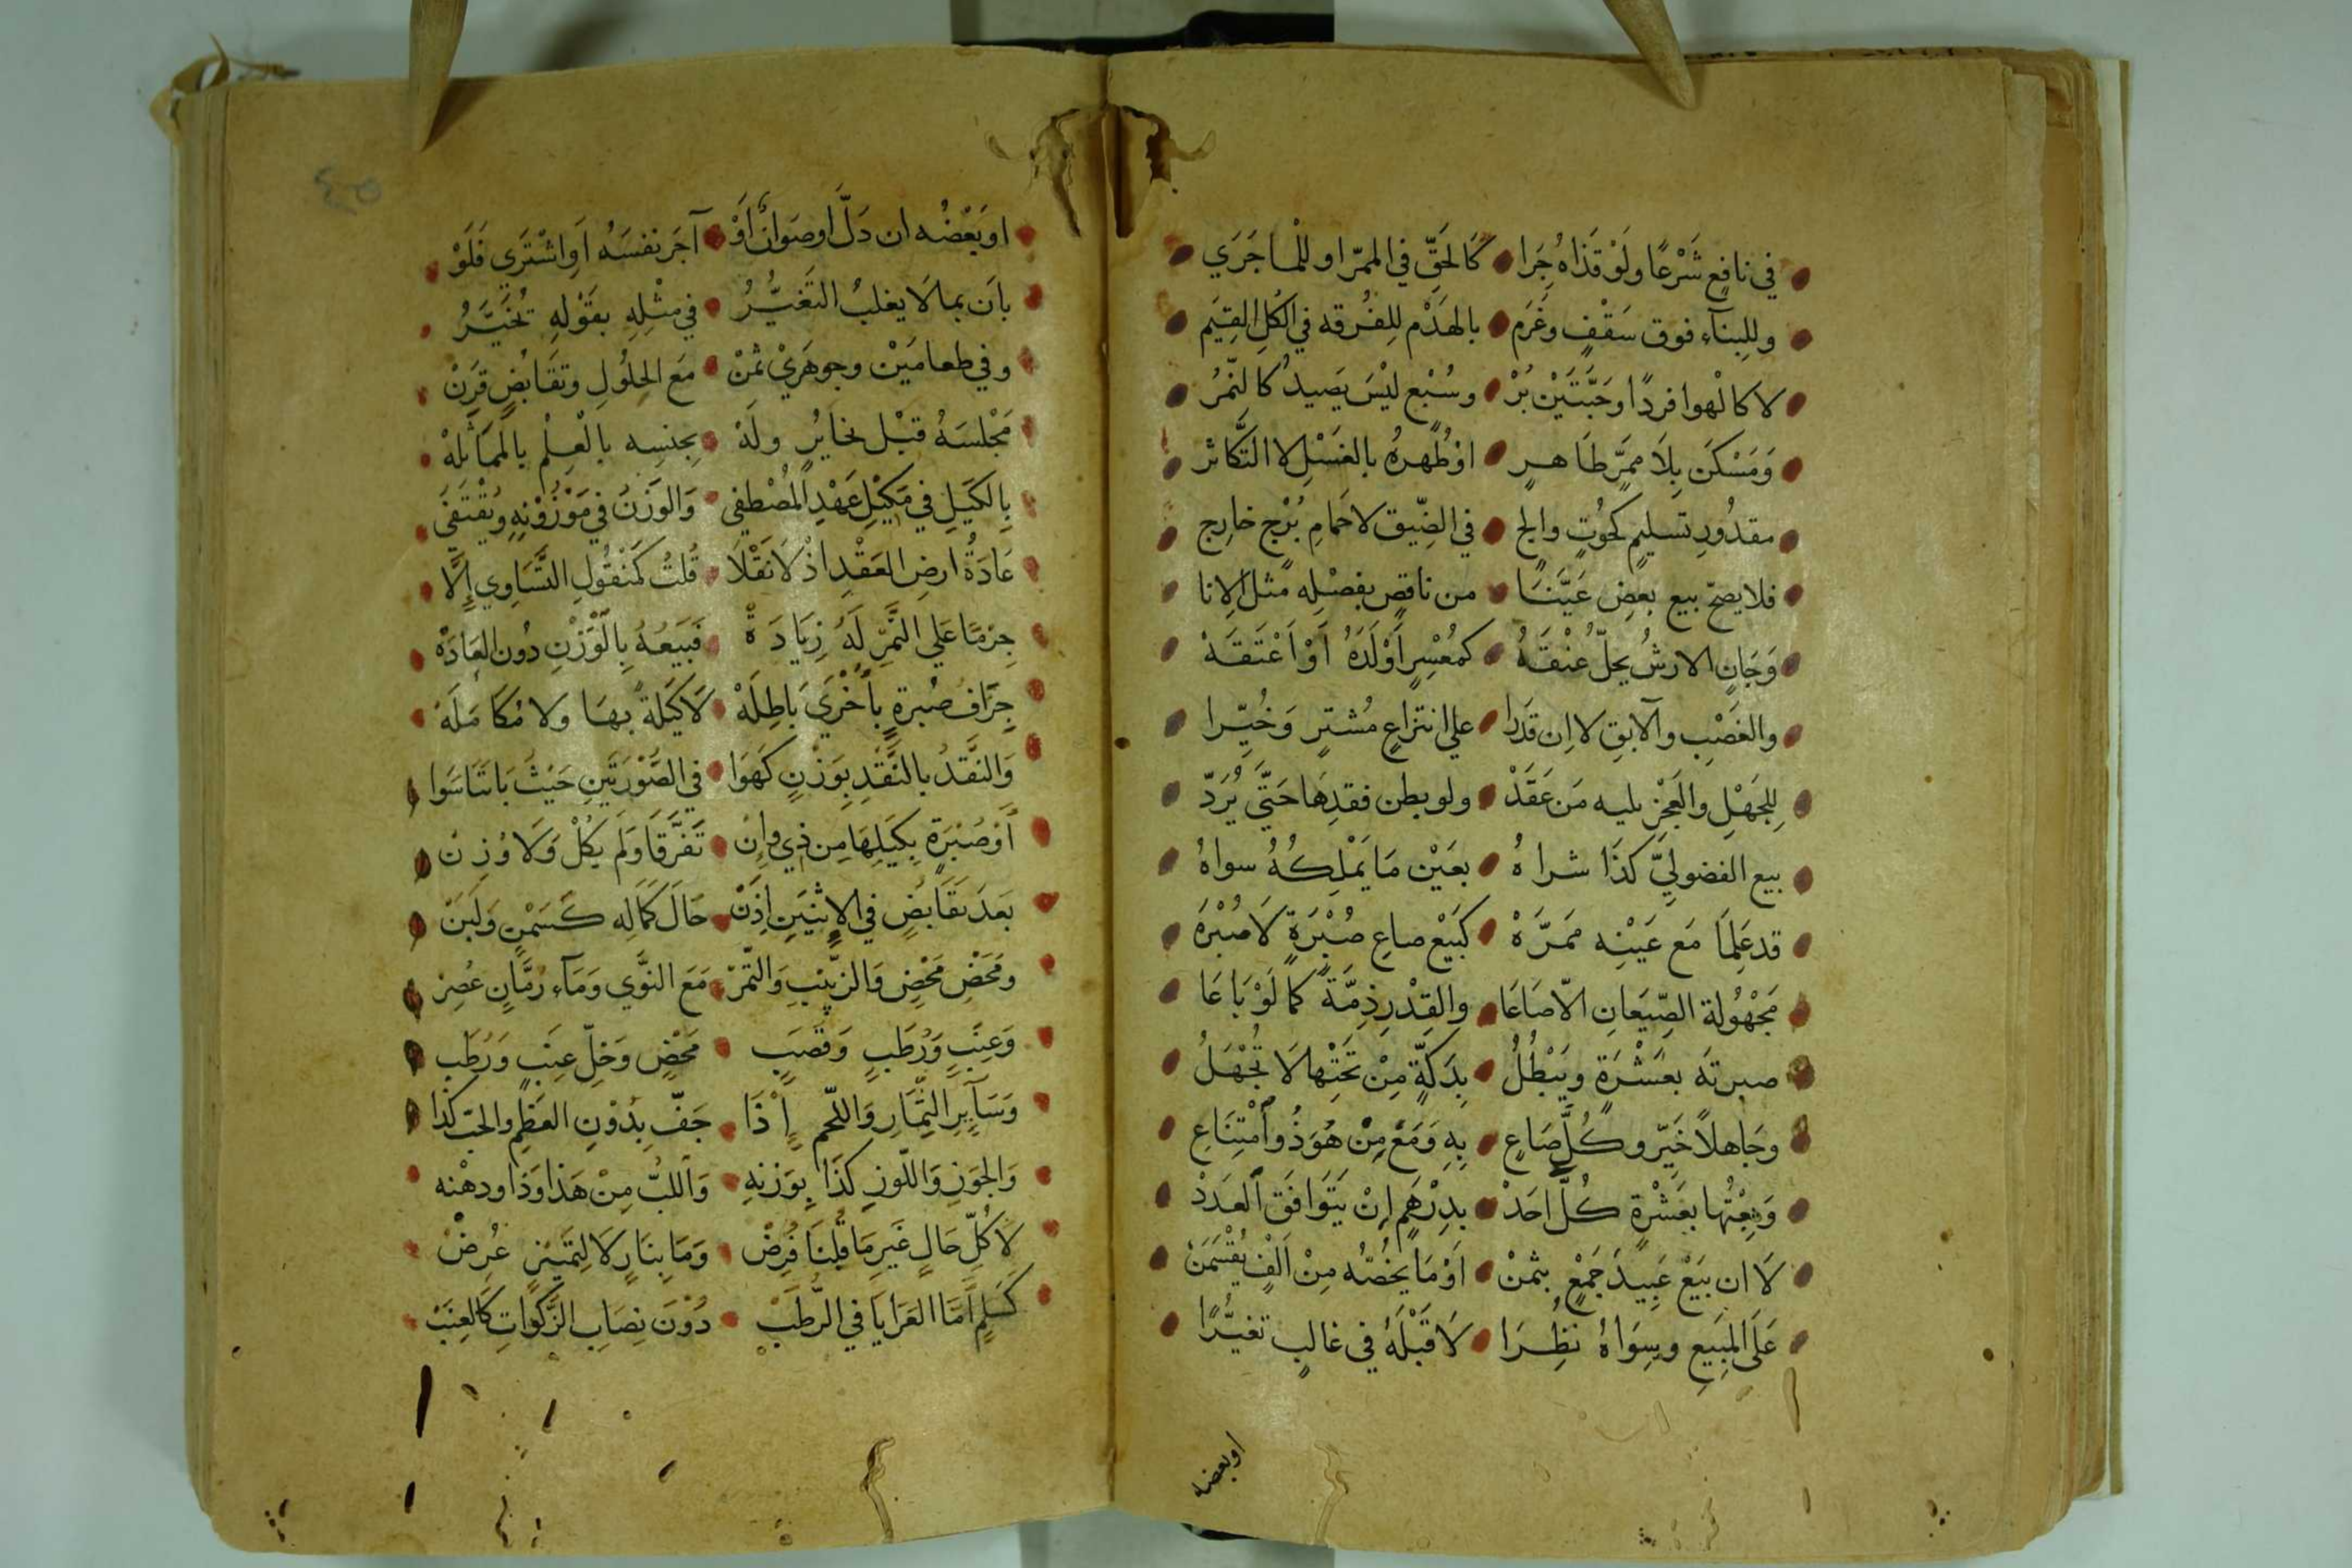 في نافعٍ شَرْعًا ولَوْ قَذَاهُ جِرَا كَالحَقِّ في الممرّ او للْماجَرَي
وللِبنآءِ فوق سَقْفٍ وغَرَم بالهَدْم للِفُرقه في الكُلِ القِيَم
لا كالهوا فردًا وحَبَّتَيْن بُرْ وسُبْع ليْسَ يَصيدُ كالنّمُر
وَمَسْكَن بِلاَ ممرّ طَاهرٍ اوْطُهرهُ بالغَسْلِ لا التَّكاثر
مقدُورِ تسليمٍ كحُوتٍ والج في الضِّيق لا حَمامِ بُرْجٍ خارج
فلا يصحّ بيع بعضٍ عَيَّنَا من ناقصٍ بفصْلِه مثل الإنا
وَجَانٍ الارشُ يحلّ عُنْقَهُ كمُعْسِرٍ أَوْلَدَهُ أَوْ اَعْتَقَهْ
والغَصْب والآبقِ لا اِن قدَرا علي انتزاعِ مُشترٍ وَخُيِّرا
لِلجَهْلِ والعَجْزِ يليه مَن عَقَدْ ولو بطن فقدِهَا حَتَّي يُرَدّ
بيع الفضوليّ كذَا شراهُ بعَيْن مَا يَمْلِكهُ سواهُ
قد عَلِمَا مَع عَيْنِه مَمَرَّهْ كبَيْع صاعِ صُبْرَةٍ لَا صُبْرَه
مَجْهُولة الصِّيَعانِ الاّ صَاعَا والقِدْرِ ذِمَّةً كما لَوْ بَاعَا
صبرتَه بعَشْرَةٍ ويَبْطُلُ بِدَكّةٍ مِنْ تَحْتِها لَا تُجْهَلُ
وجَاهلاً خَيّر وكُلَّ صَاعٍ بِهِ وَمَعْ مِنْ هُوَ ذُو اُمْتِنَاعِ
وَبِعْتُها بعَشْرةٍ كُلَّ احَدْ بدِرْهَمٍ اِنْ يَتَوَافَقِ العَدَدْ
لَا ان بَيْعْ عَبِيدَ جَمْعٍ بثمنْ اَوْ مَا يخُصّه مِنْ اَلْفٍ يُقْسَمَنْ
عَلَى المَبِيعِ وسِوَاهُ نظِرَا لَا قَبْلَهُ في غالبٍ تغيُّرًا
اوبعضه
٤٥
او بَعْضُه ان دَلَّ او صَوانٌ اَوْ آجَر نفسَهُ اَوِ اشْتَرَي فَلَوْ
بانَ بما لَا يغلبُ التَغَيُّرُ في مثْلِهِ بقَوْلهِ تُخُيَّرُ
وفي طعامَيْن وجوهَرَيْ ثمَنْ مَع الحلُولِ وتقَابُضٍ قرَنْ
مَجْلسَهُ قبْل تخايُرٍ ولَهْ بِجنسِه بالْعِلْم بالْمَمَاثَلهْ
بِالكَيَلِ في مَكيْلِ عَهْدِ المُصْطفي وَالوَزنُ في مَوْزُوْنِهِ ويُقْتَفَى
عَادَةُ ارضِ العَقْدِ اذْ لَا نَقْلَا قُلتُ كمَنْقُولِ التَّسَاوِي إلَّا
جِرْمًا عَلي التَّمْرِ لَهُ زِيَادَةْ فَبَيَعُهُ بِالْوَزْنِ دُون العَادَهْ
جِزَافُ صُبرةٍ بأُخْرَي بَاطِلَهْ لَا كَيْلَةً بهَا ولا مُكَامَلَهْ
وَالنقَّدُ بالنَّقْدِ بِوَزنٍ كَهُوَا في الصَّوْرَتَينِ حَيْثُ بَانَتَا سَوا
أَوْ صُبْرَةٍ بِكَيْلِهَا مِن ذِي وإنْ تَفَرَّقَا وَلَم يُكَلْ وَلَا وُزِنْ
بَعَدَ تقَابُضٍ في الاِثنَينِ اِذَنْ حَالَ كَمَالِه كَسَمْنٍ وَلَبَنْ
ومَحَضْ مَحْضٍ وَالزبيْبِ وَالتّمرْ مَعَ النوَّي وَمَآءِ رُمَّانٍ عُصِرْ
وَعِنَبٍ وَرُطَبٍ وَقصَبٍ مَحْضٍ وَخلِّ عِنَبٍ وَرُطَبِ
وَسَآيِرِ الثّمَارِ وَاللّحمِ إذَا جَفّ بِدُوْنِ العَظمِ والحَبّ كذَا
وَالجَوَزِ وَاللّوزِ كذَا بِوَزنهِ وَاللبُّ مِنْ هَذا وَذَا ودهْنه
لَا كُلِّ حَالٍ غَيرِ مَا قُلنَا فُرِضْ وَمَا بِنَارٍ لَا لِتَمَيِيْزٍ عُرِضْ
كَسَلمٍ اَمَّا العَرَايَا في الرُّطَبْ دُوْنَ نِصَابِ الزَّكوَاتِ كَالعِنَبْ